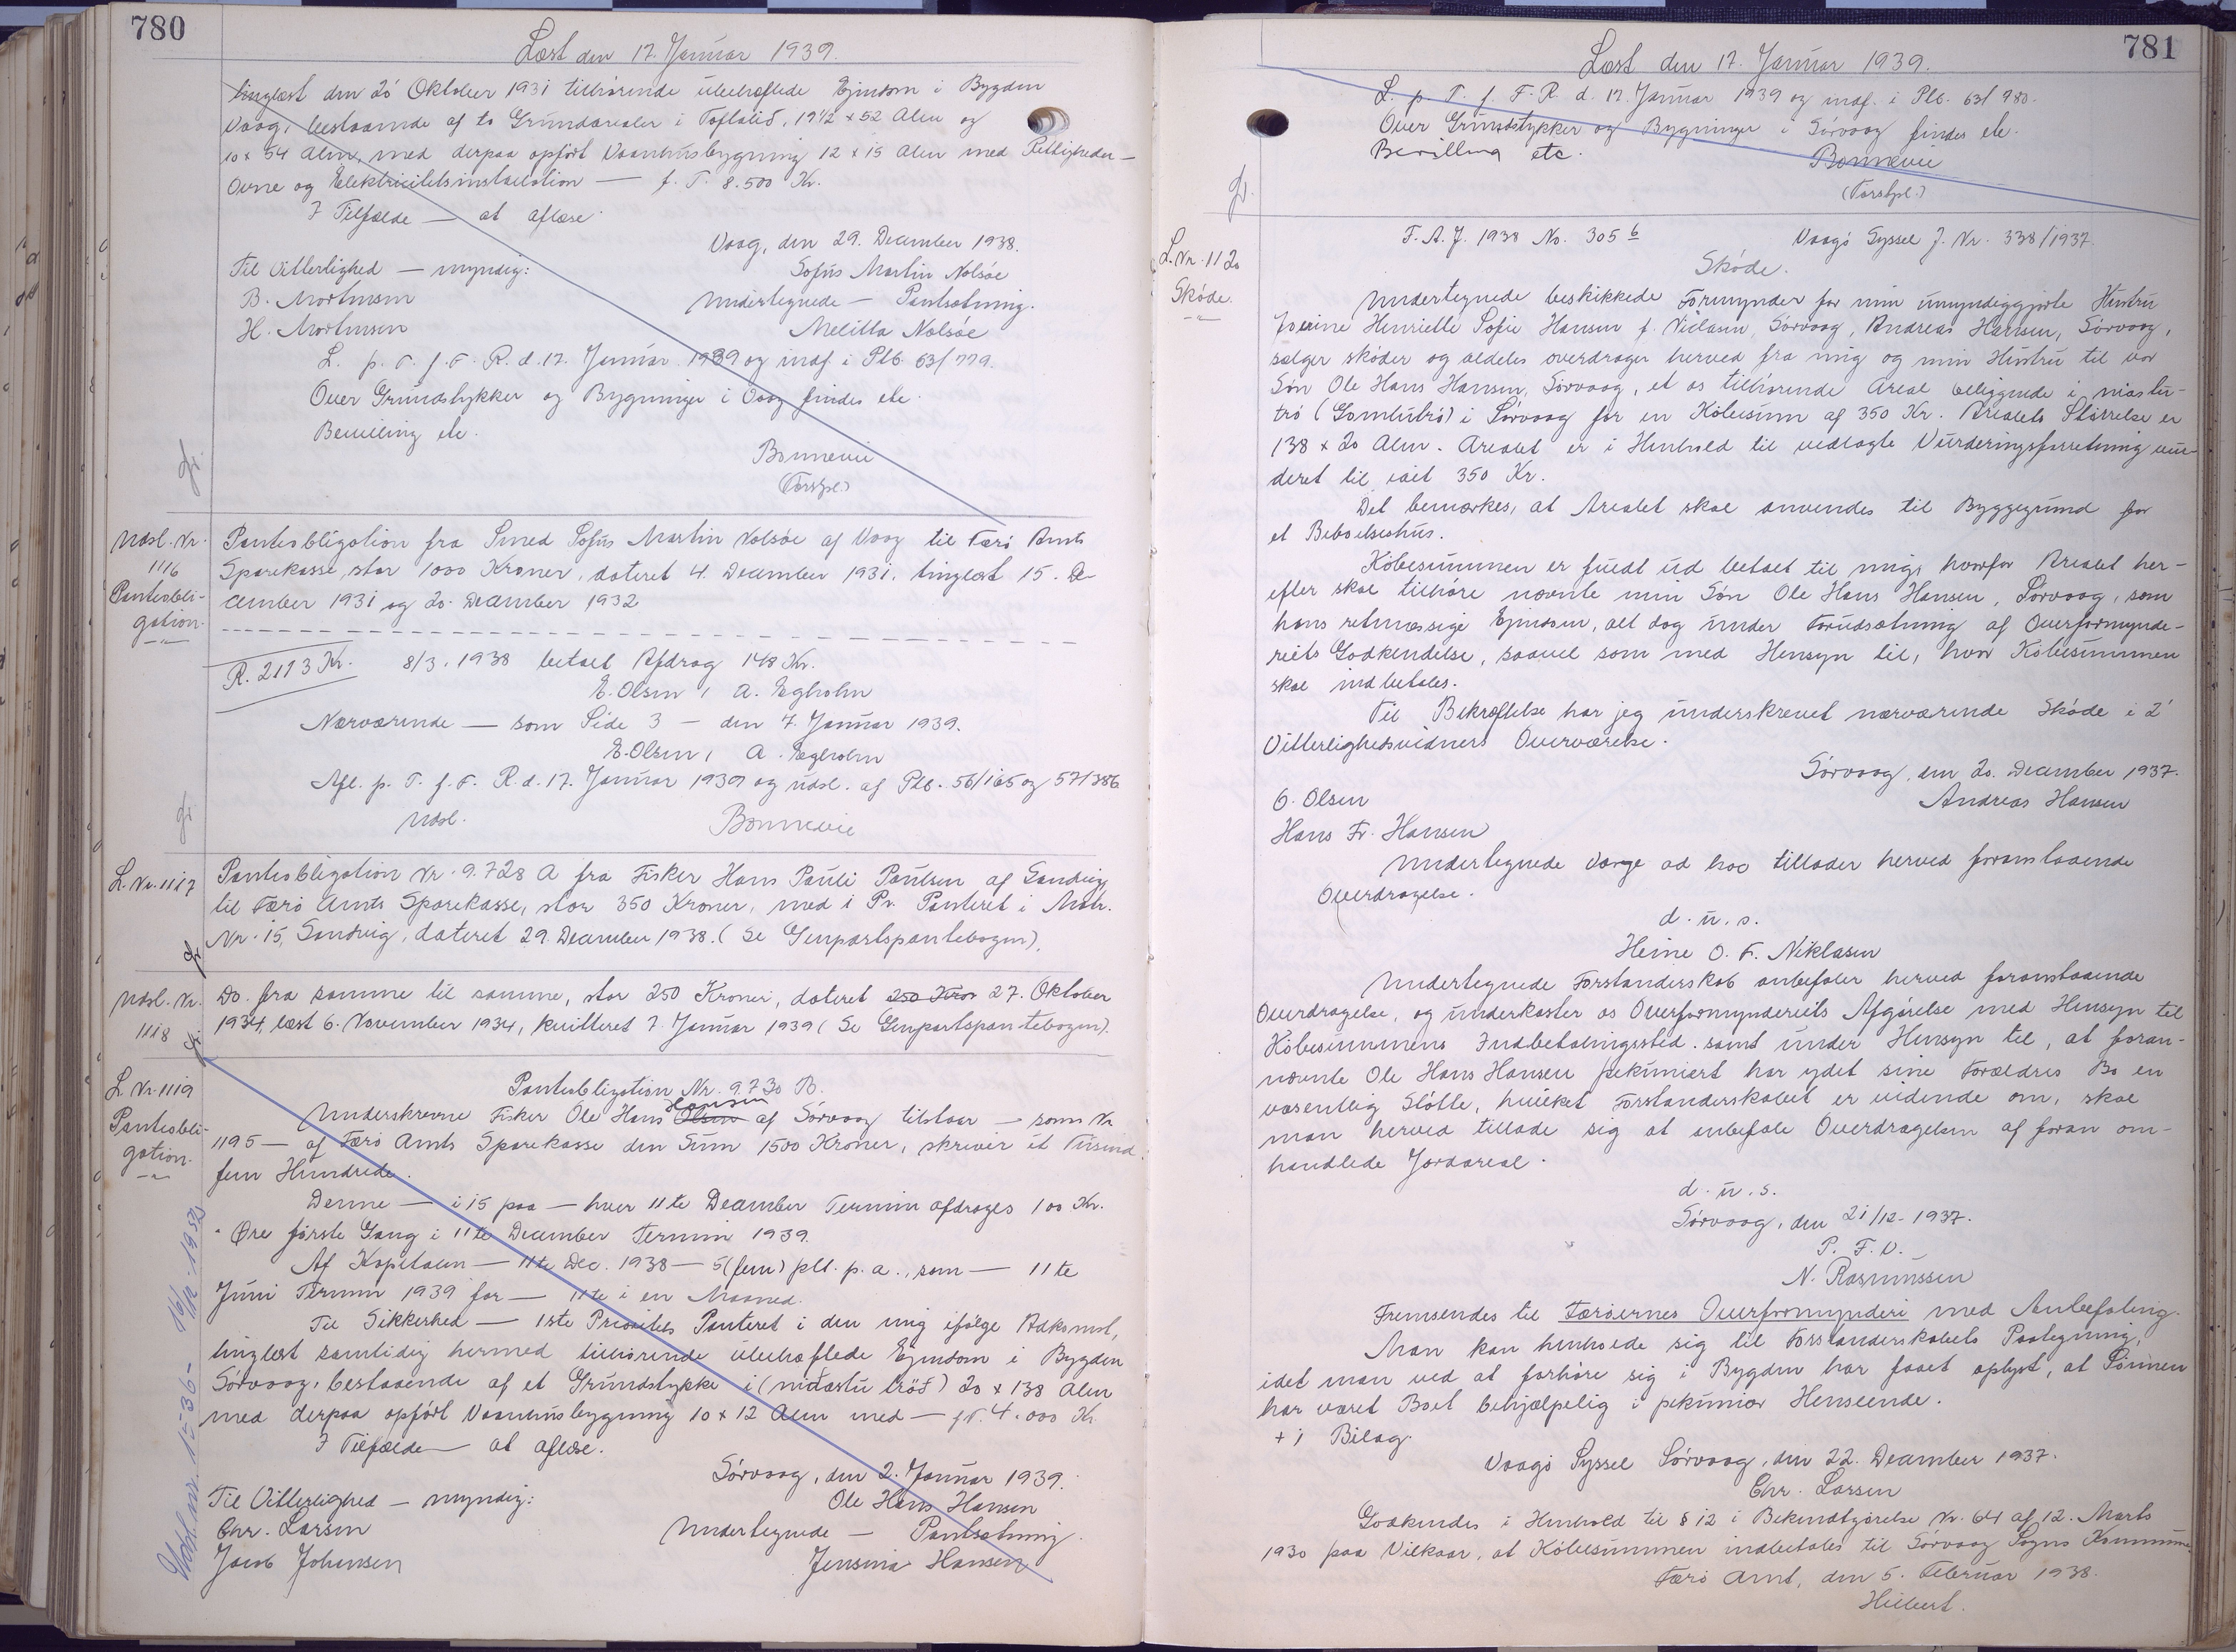 780
Læst den 17. Januar 1939.
tinglæst den 20 Oktober 1931 tilhørende ubehæftede Ejendom i Bygden
Vaag, bestaaende af to Grundarealer i Toftalið, 19 1/2 x 52 Alen og
10 x 54 Alen, med derpaa opført Vaanhusbygning 12 x 15 Alen med Rettigheder —
Ovne og Elektricitetsinstallation — f. T. 8.500 Kr.
I Tilfælde — at aflæse.
Vaag, den 29. December 1938.
Til Vitterlighed — myndig: Sofus Martin Nolsøe
B. Mortensen Undertegnede — Pantsætning.
H. Mortensen Melitta Nolsøe
L. p. T. f. F. R. d. 17. Januar 1939 og indf. i Plb. 63/779.
Over Grundstykker og Bygninger i Vaag findes ete.
Bevilling etc.
Bonnevie
(Forstpl.)
Udsl. Nr. 1116
Pantobligation.
Pantobligation fra Smed Sofus Martin Nolsøe af Vaag til Færø Amts
Sparekasse, stor 1000 Kroner, dateret 4. December 1931, tinglæst 15. De-
cember 1931 og 20. December 1932
R. 2113 Kr. 8/3. 1938 betalt Afdrag 148 Kr.
E. Olsen, A. Egholm
Nærværende — som Side 3 — den 7. Januar 1939.
E. Olsen, A. Egholm
Afl. p. T. f. F. R. d. 17. Januar 1939 og udsl. af Plb. 56/165 og 57/386
Udsl. Bonnevie
L. Nr. 1117
Pantobligation Nr. 9.728 A fra Fisker Hans Pauli Poulsen af Sandvig
til Færø Amts Sparekasse, stor 350 Kroner, med i Pr. Panteret i Matr.
Nr. 15, Sandvig, dateret 29. December 1938. (Se Genpartspantebogen).
Udsl. Nr. 1118
Do. fra samme til samme, stor 250 Kroner, dateret 250 Kron 27. Oktober
1934, læst 6. November 1934, kvitteret 7. Januar 1939 (Se Genpartspantebogen).
L Nr. 1119
Pantobligation.
Pantobligation Nr. 9730 B.
Underskrevne Fisker Ole Hans Olsen Hansen af Sørvaag tilstaar — som Nr
1195 — af Færø Amts Sparekasse den Sum 1500 Kroner, skriver et Tusind
fem Hundrede.
Denne — i 15 paa — hver 11te December Termin afdrages 100 Kr.
" Øre første Gang i 11te December Termin 1939.
Af Kapitalen — 11te Dec. 1938 — 5 (fem) pCt. p. a., som — 11te
Juni Termin 1939 for — 11te i en Maaned.
Til Sikkerhed — 1ste Prioritets Panteret i den mig ifølge Adkomst,
tinglæst samtidig hermed tilhørende ubehæftede Ejendom i Bygden
Sørvaag, bestaaende af et Grundstykke i (niðastu trøð) 20 x 138 Alen
med derpaa opført Vaanhusbygning 10 x 12 Alen med — f. T. 4.000 Kr.
I Tilfælde — at aflæse.
Sørvaag, den 2. Januar 1939.
Til Vitterlighed — myndig: Ole Hans Hansen
Chr. Larsen Undertegnede — Pantsætning.
Jacob Johansen Jensina Hansen
781
Læst den 17. Januar 1939.
L. p. T. f. F. R. d. 17. Januar 1939 og indf. i Plb. 63/780.
Over Grundstykker og Bygninger i Sørvaag findes ete.
Bevilling etc. Bonnevie
(Forstpl.)
L. Nr. 1120
Skøde.
F. A. J. 1938 No. 305 6 Vaagø Syssel J. Nr. 338/1937.
Skøde.
Undertegnede beskikkede Formynder for min umyndiggjorte Hustru
Henriette Sofie Hansen f. Niclasen, Sørvaag, Andreas Hansen, Sørvaag,
sælger skøder og aldeles overdrager herved fra mig og min Hustru til vor
Søn Ole Hans Hansen, Sørvaag, et os tilhørende Areal beliggende i niastu-
trø (Gamlutrø) i Sørvaag for en Købesum af 350 Kr. Arealets Størrelse er
138 x 20 Alen. Arealet er i Henhold til vedlagte Vurderingsforretning vur-
deret til ialt 350 Kr.
Det bemærkes, at Arealet skal anvendes til Byggegrund for
et Beboelseshus.
Købesummen er fuldt ud betalt til mig, hvorfor Arealet her-
efter skal tilhøre nævnte min Søn Ole Hans Hansen, Sørvaag, som
hans retmæssige Ejendom, alt dog under Forudsætning af Overformynde-
riets Godkendelse, saavel som med Hensyn til, hvor Købesummen
skal indbetales.
Til Bekræftelse har jeg underskrevet nærværende Skøde i 2
Vitterlighedsvidners Overværelse.
Sørvaag, den 20. December 1937.
O. Olsen Andreas Hansen
Hans Fr. Hansen
Undertegnede Værge ad hoc tillader herved foranstaaende
Overdragelse.
d. u. s.
Heine O. F. Niklasen
Undertegnede Forstanderskab anbefaler herved foranstaaende
Overdragelse, og underkaster os Overformynderiets Afgørelse med Hensyn til
Købesummens Indbetalingssted, samt under Hensyn til, at foran-
nævnte Ole Hans Hansen pekuniært har ydet sine Forældres Bo en
væsentlig Støtte, hvilket Forstanderskabet er vidende om, skal
man herved tillade sig at anbefale Overdragelsen af foran om-
handlede Jordareal.
d. u. s.
Sørvaag, den 21/12-1937.
P. F. V.
N. Rasmussen
Fremsendes til Færøernes Overformynderi med Anbefaling.
Man kan henholde sig til Forstanderskabets Paategning,
idet man ved at forhøre sig i Bygden har faaet oplyst, at Sønnen
har været Boet behjælpelig i pekuniær Henseende.
+ 1 Bilag.
Vaagø Syssel Sørvaag, den 22. December 1937.
Chr. Larsen
Godkendes i Henhold til § 12 i Bekendtgørelse Nr. 64 af 12. Marts
1930 paa Vilkaar, at Købesummen indbetales til Sørvaag Sogns Kommune.
Færø Amt, den 5. Februar 1938.
Hilbert.